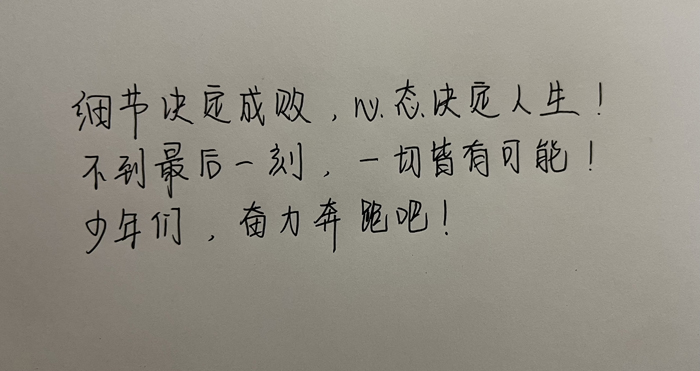 细节决定成败，心态决定人生！
不到最后一刻，一切皆有可能！
少年们，奋力奔跑吧！